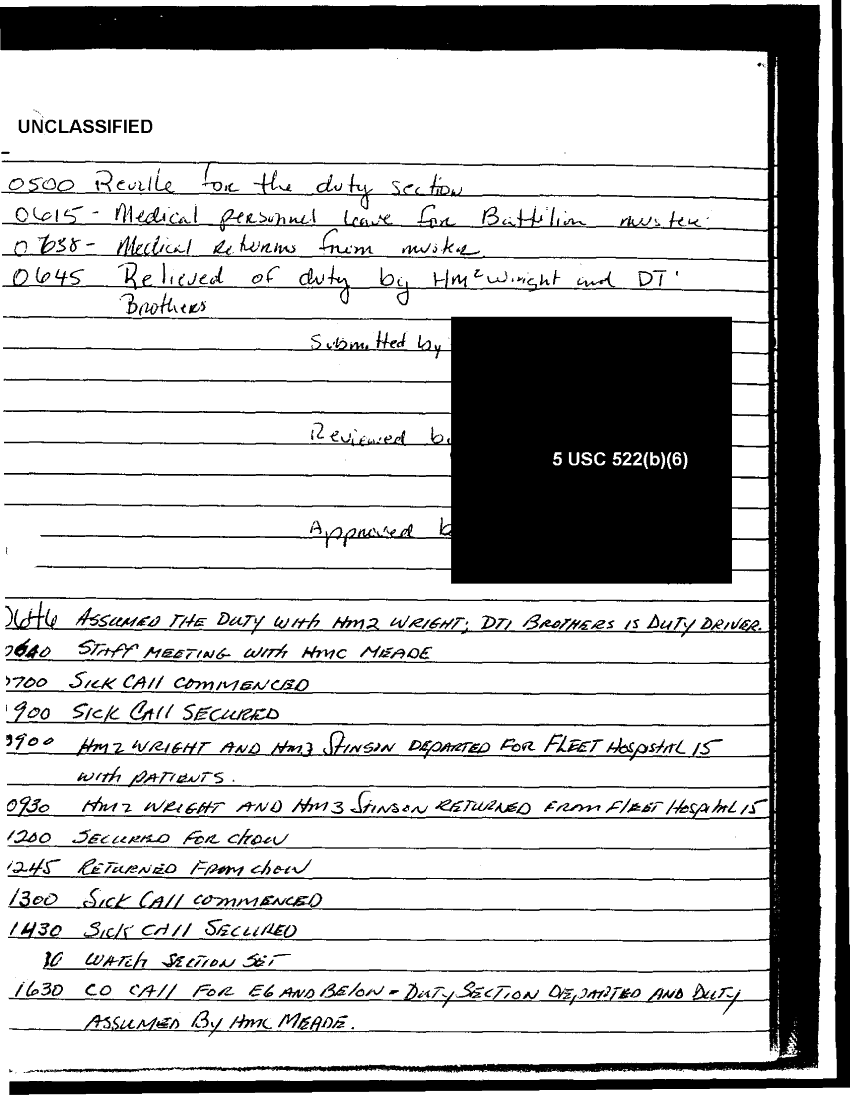 UNCLASSIFIED
0500 Reville for the duty section
0615 - Medical personnel leave for Battilion muster.
0638 - Medical returns from muster.
0645 Relieved of duty by HM2 Wright and DT1
Brothers
Submitted by
Reviewed b
5 USC 522(b)(6)
Approved b
ASSUMED THE DUTY WITH HM2 WRIGHT; DT1 BROTHERS IS DUTY DRIVER.
STAFF MEETING WITH HMC MEADE
0700 SICK CALL COMMENCED
900 SICK CALL SECURED
0900 HM2 WRIGHT AND HM3 STINSON DEPARTED FOR FLEET HOSPITAL 15
WITH PATIENTS.
0930 HM2 WRIGHT AND HM3 STINSON RETURNED FROM FLEET HOSPITAL 15
1200 SECURED FOR CHOW
1245 RETURNED FROM CHOW
1300 SICK CALL COMMENCED
1430 SICK CALL SECURED
WATCH SECTION SET
1630 CO CALL FOR E6 AND BELOW - DUTY SECTION DEPARTED AND DUTY
ASSUMED BY HMC MEADE.